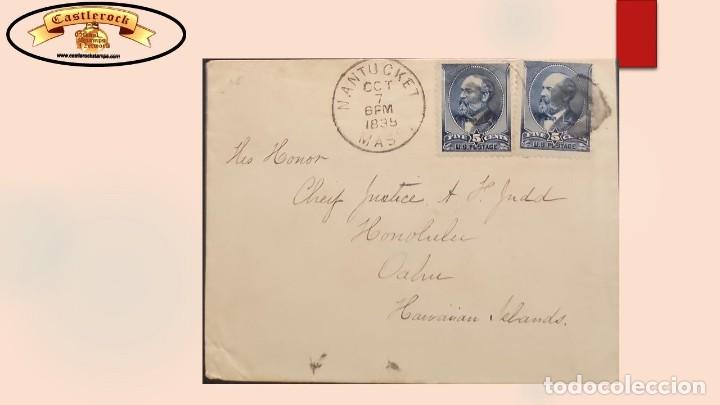 Castlerock
www.castlerockstamps.com
NANTUCKET
OCT
7
6PM
1889
MAS
FIVE 5 CENTS
U.S. POSTAGE
FIVE 5 CENTS
U.S. POSTAGE
His Honor
Cheif Justice A F Judd
Honolulu
Oahu
Hawaiian Islands.
todocoleccion